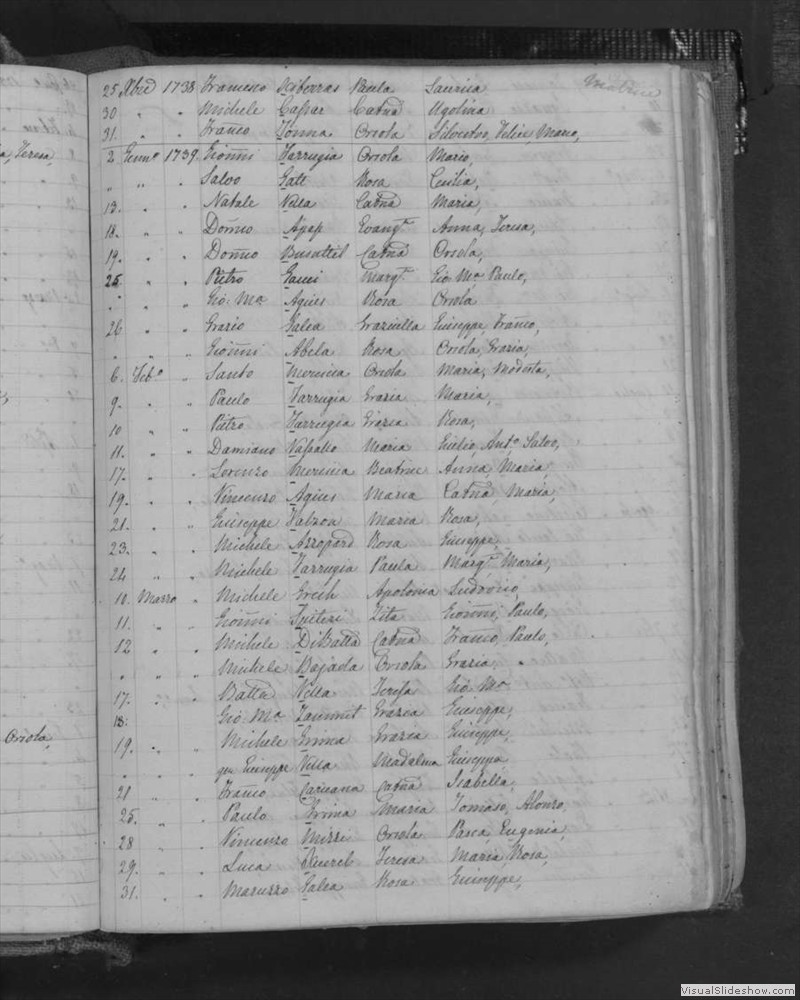 Matrice
25 Xbre 1738 Francesco Xiberras Paula Saurica
30 " " Michele Caspar Catna Ugolina
31. " " Franco Tonna Orsola Silvestro, Felice, Mario,
a, Teresa
2 Genn.o 1739. Gionni Farrugia Orsola Mario,
" " " Salvo Gatt Rosa Cecilia,
13. " " Natale Vella Catna Maria,
18. " " Domco Ajep Evang.ta Anna, Teresa,
19. " " Domco Busuttil Catna Orsola,
25 " " Pietro Gauci Marg.ta Gio. Ma. Paulo,
" " " Gio. Ma Agius Rosa Orsola
26 " " Grazio Galea Graziulla Giuseppe, Franco,
" " " Gionni Abela Rosa Orsola, Grazia,
6. Feb.o " Santo Mercieca Orsola Maria, Modesta,
9. " " Paulo Farrugia Grazia Maria,
10 " " Pietro Farrugia Grazia Rosa,
11. " " Damiano Vassallo Maria Emilio, Ant.o Salvo,
17. " " Lorenzo Mercieca Beatrice Anna, Maria,
19. " " Vincenzo Agius Maria Catna, Maria,
21. " " Giuseppe Falzon Maria Rosa,
23. " " Michele Azzopard Rosa Giuseppe,
24 " " Michele Farrugia Paula Marg.ta Maria,
10. Marzo " Michele Grech Apolonia Ludovico,
11. " " Gionni Spiteri Zita Gionni, Paulo,
12 " " Michele DiBatta Catna Franco, Paulo,
" " " Michele Bajada Orsola Grazia,
17. " " Batta Vella Teresa Gio. Ma
18: Gio. Ma Zammit Grazia Giuseppe,
Orsola,
19. " " Michele Grima Grazia Giuseppe,
" " " qm Giuseppe Vella Madalena Giuseppa
21 " " Franco Caruana Catna Isabella,
25. " " Paulo Grima Maria Tomaso, Alonzo,
28 " " Vincenzo Mizzi Orsola Pasca, Eugenia,
29. " " Luca Curel Teresa Maria Rosa,
31. " " Maruzzo Galea Rosa Giuseppe,
VisualSlideshow.com